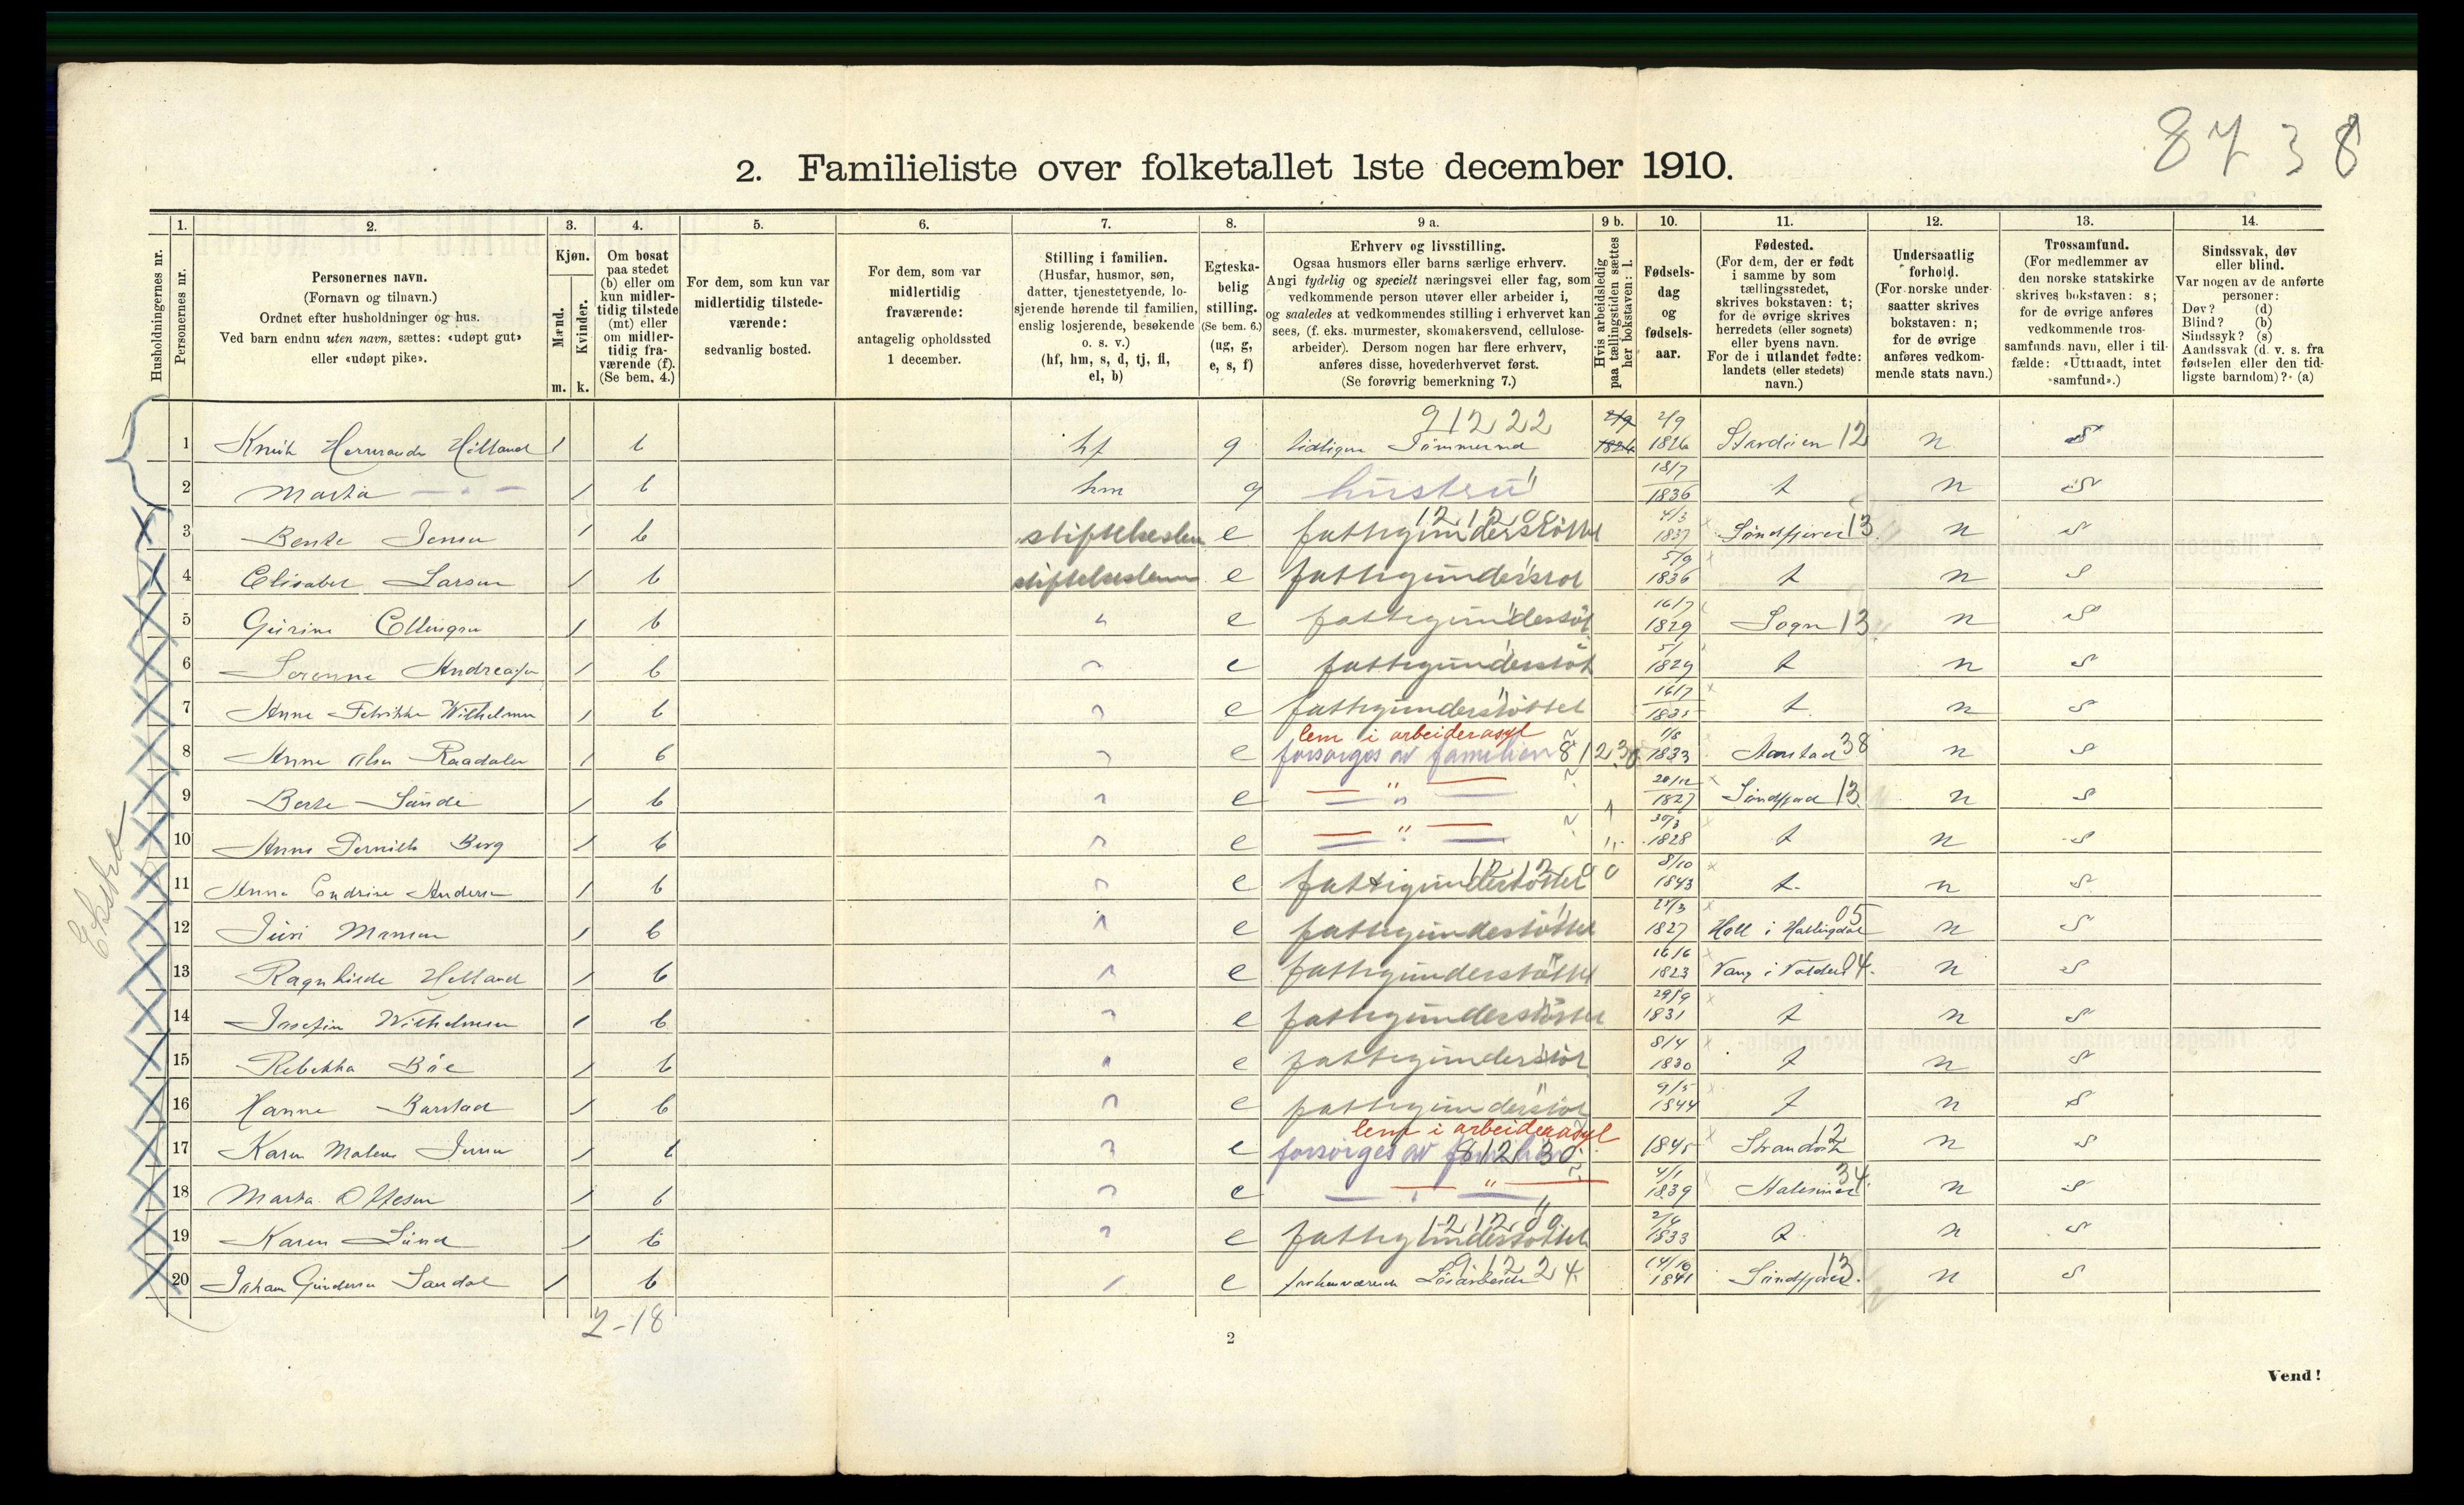 8738
2. Familieliste over folketallet 1ste december 1910.
Husholdningernes nr.
1. Personernes nr.
2. Personernes navn.
(Fornavn og tilnavn.)
Ordnet efter husholdninger og hus.
Ved barn endnu uten navn, sættes: «udøpt gut»
eller «udøpt pike».
3. Kjøn.
Mænd. m.
Kvinder. k.
4. Om bosat
paa stedet
(b) eller om
kun midler-
tidig tilstede
(mt) eller
om midler-
tidig fra-
værende (f).
(Se bem. 4.)
5. For dem, som kun var
midlertidig tilstede-
værende:
sedvanlig bosted.
6. For dem, som var
midlertidig
fraværende:
antagelig opholdssted
1 december.
7. Stilling i familien.
(Husfar, husmor, søn,
datter, tjenestetyende, lo-
sjerende hørende til familien,
enslig losjerende, besøkende
o. s. v.)
(hf, hm, s, d, tj, fl,
el, b)
8. Egteska-
belig
stilling.
(Se bem. 6.)
(ug, g,
e, s, f)
9 a. Erhverv og livsstilling.
Ogsaa husmors eller barns særlige erhverv.
Angi tydelig og specielt næringsvei eller fag, som
vedkommende person utøver eller arbeider i,
og saaledes at vedkommendes stilling i erhvervet kan
sees, (f. eks. murmester, skomakersvend, cellulose-
arbeider). Dersom nogen har flere erhverv,
anføres disse, hovederhvervet først.
(Se forøvrig bemerkning 7.)
9 b. Hvis arbeidsledig
paa tællingstiden sættes
her bokstaven: l.
10. Fødsels-
dag
og
fødsels-
aar.
11. Fødested.
(For dem, der er født
i samme by som
tællingsstedet,
skrives bokstaven: t;
for de øvrige skrives
herredets (eller sognets)
eller byens navn.
For de i utlandet fødte:
landets (eller stedets)
navn.)
12. Undersaatlig
forhold.
(For norske under-
saatter skrives
bokstaven: n;
for de øvrige
anføres vedkom-
mende stats navn.)
13. Trossamfund.
(For medlemmer av
den norske statskirke
skrives bokstaven: s;
for de øvrige anføres
vedkommende tros-
samfunds navn, eller i til-
fælde: «Uttraadt, intet
samfund».)
14. Sindssvak, døv
eller blind.
Var nogen av de anførte
personer:
Døv? (d)
Blind? (b)
Sindssyk? (s)
Aandssvak (d. v. s. fra
fødselen eller den tid-
ligste barndom)? (a)
1 Hilland 1 b hf g tidligere 91222 2/9 1826 2/9 1826 12 n S
2 Marta 1 b hm g hustru 18/7 1836 t n S
3 Bente Jensen 1 b stiftelseslem e fattigunderstøttet 121200 4/3 1837 Søndfjord 13 n S
4 Elisabet Larsen 1 b stiftelseslem e fattigunderstøt 5/9 1836 t n S
5 Gurine Ellingsen 1 b " e fattigunderstøt 16/7 1829 Sogn 13 n S
6 Andreasen 1 b " e fattigunderstøt 5/1 1829 t n S
7 Anne Wilhelmsen 1 b " e fattigunderstøttet 16/7 1835 t n S
8 Anne Olsen Raadalen 1 b " e lem i arbeiderasyl forsørges av familien 81230 1/8 1833 Aarstad 38 n S
9 Berte Sunde 1 b " e " 20/12 1827 Søndfjord 13 n S
10 Anne Pernille Berg 1 b " e " 30/3 1828 t n S
11 Anna Endrine Andersen 1 b " e fattigunderstøttet 121200 8/10 1843 t n S
12 Guri Monsen 1 b " e fattigunderstøttet 1827 Holl i Hallingdal 05 n S
13 Ragnhilde Helland 1 b " e fattigunderstøttet 16/6 1823 Vang i Valders 04 n S
14 Josefine Wilhelmsen 1 b " e fattigunderstøttet 29/9 1831 t n S
15 Rebekka Bøe 1 b " e fattigunderstøt 8/4 1830 t n S
16 Hanne Barstad 1 b " e fattigunderstøt 9/5 1844 t n S
17 Karen Malene Jensen 1 b " e lem i arbeiderasyl forsørges av familien 81230 1845 Strandvik 12 n S
18 Marta Ottesen 1 b " e " 4/1 1839 34 n S
19 Karen Lund 1 b " e fattigunderstøttet 121200 1833 t n S
20 Johan Gundersen Sandal 1 b e forhenværende Løsarbeider 91224 14/10 1841 Søndfjord 13 n S
Ekstra
2-18
2
Vend!